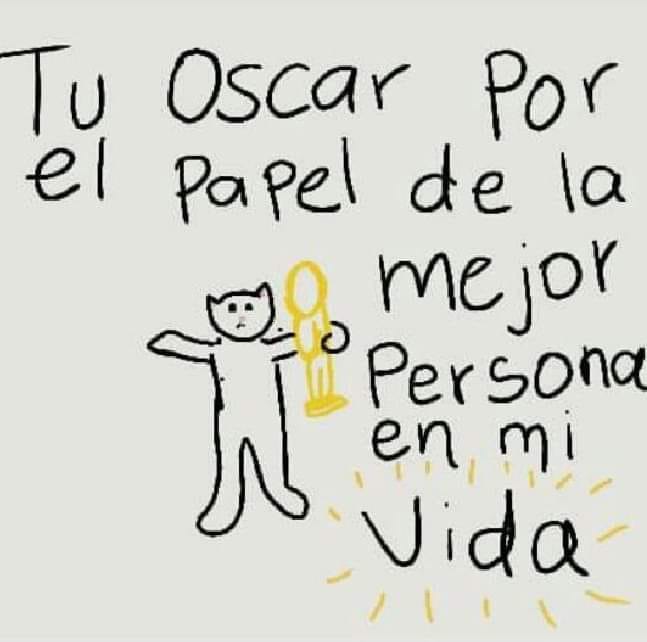 Tu Oscar Por
el Papel de la
mejor
Persona
en mi
Vida